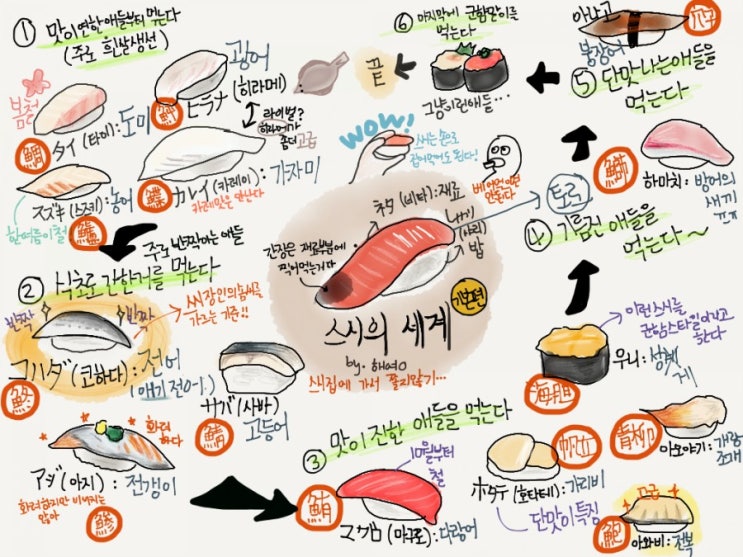 ① 맛이 연한 애들부터 먹는다
(주로 흰살생선)
봄철
タイ (타이): 도미
鯛
광어
ヒラメ (히라메)
라이벌?
히라메가
좀더 고급
スズキ (스즈키): 농어
한여름이 철
鱸
カレイ (카레이): 가자미
카레맛은 안난다
鰈
주로 반짝이는 애들
② 식초로 간한거를 먹는다
반짝
반짝
スシ장인의 솜씨를
가르는 기준!!
コハダ (코하다): 전어
(애기 전어).
サバ (사바)
고등어
鯖
화려
하다
アジ (아지): 전갱이
화려하지만 비싸지는
않아
鯵
③ 맛이 진한 애들을 먹는다
10월부터
철
マグロ (마구로): 다랑어
鮪
ホタテ (호타테): 가리비
단맛이 특징
帆立
青柳
아오야기: 개량
조개
고급
아와비: 전복
鮑
이런 스시를
군함스타일이라고
한다
우니: 성게
海胆
④ 기름진 애들을
먹는다~
토로
하마치: 방어의
새끼
⑤ 단맛 나는 애들을
먹는다
아나고
붕장어
穴子
⑥ 마지막에 군함말이를
먹는다
그냥 이런 애들...
끝
WOW!
スシ는 손으로
집어먹어도 된다!
베어먹으면
안된다
ネタ (네타): 재료
샤리
(샤리)
밥
간장은 재료부분에
찍어먹는거다
스시의 세계
기본편
by. 해여○
スシ집에 가서 쫄지말기...